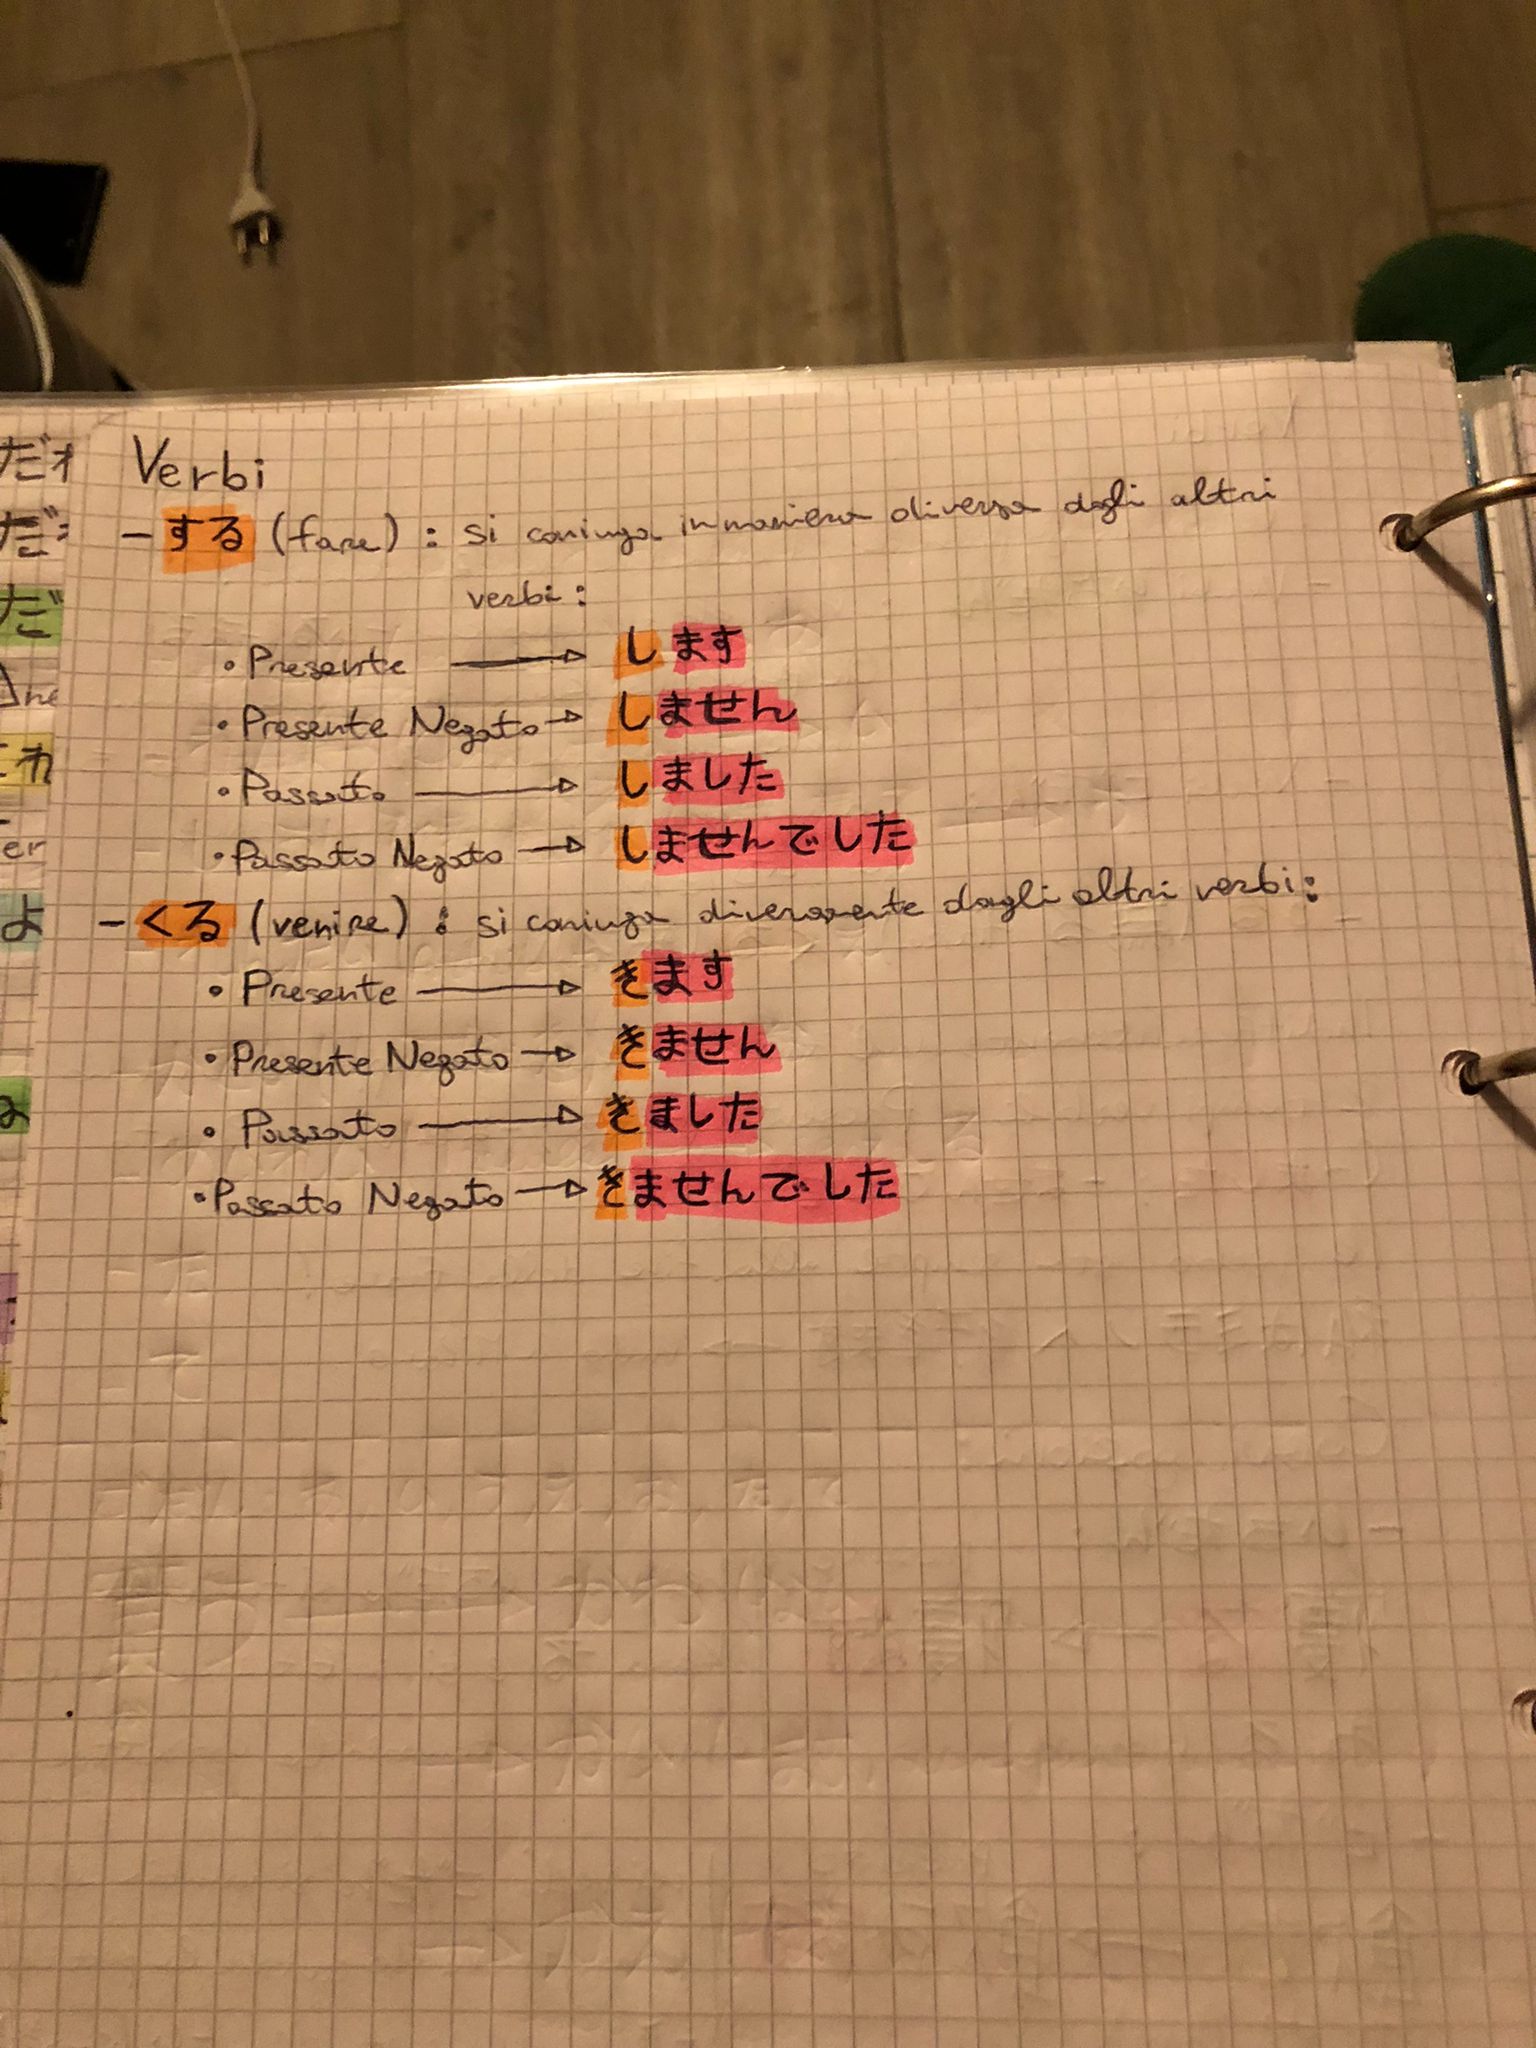 Verbi
- する (fare) : si coniuga in maniera diversa dagli altri
verbi :
• Presente → します
• Presente Negato → しません
• Passato → しました
• Passato Negato → しませんでした
- くる (venire) : si coniuga diversamente dagli altri verbi :
• Presente → きます
• Presente Negato → きません
• Passato → きました
• Passato Negato → きませんでした